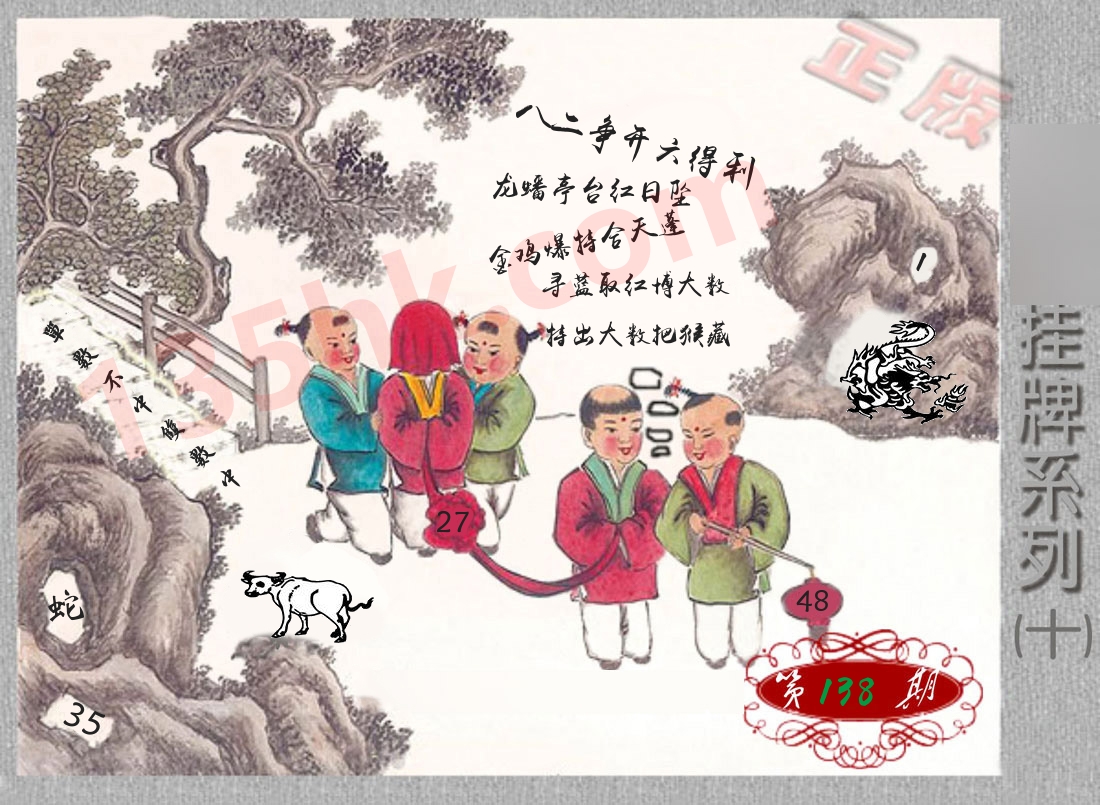 正版
八二争开六得利
龙蟠亭台红日坠
金鸡爆特合天蓬
寻蓝取红博大数
特出大数把猴藏
135hk.com
單數不中雙數中
27
48
蛇
35
第138期
挂牌系列(十)